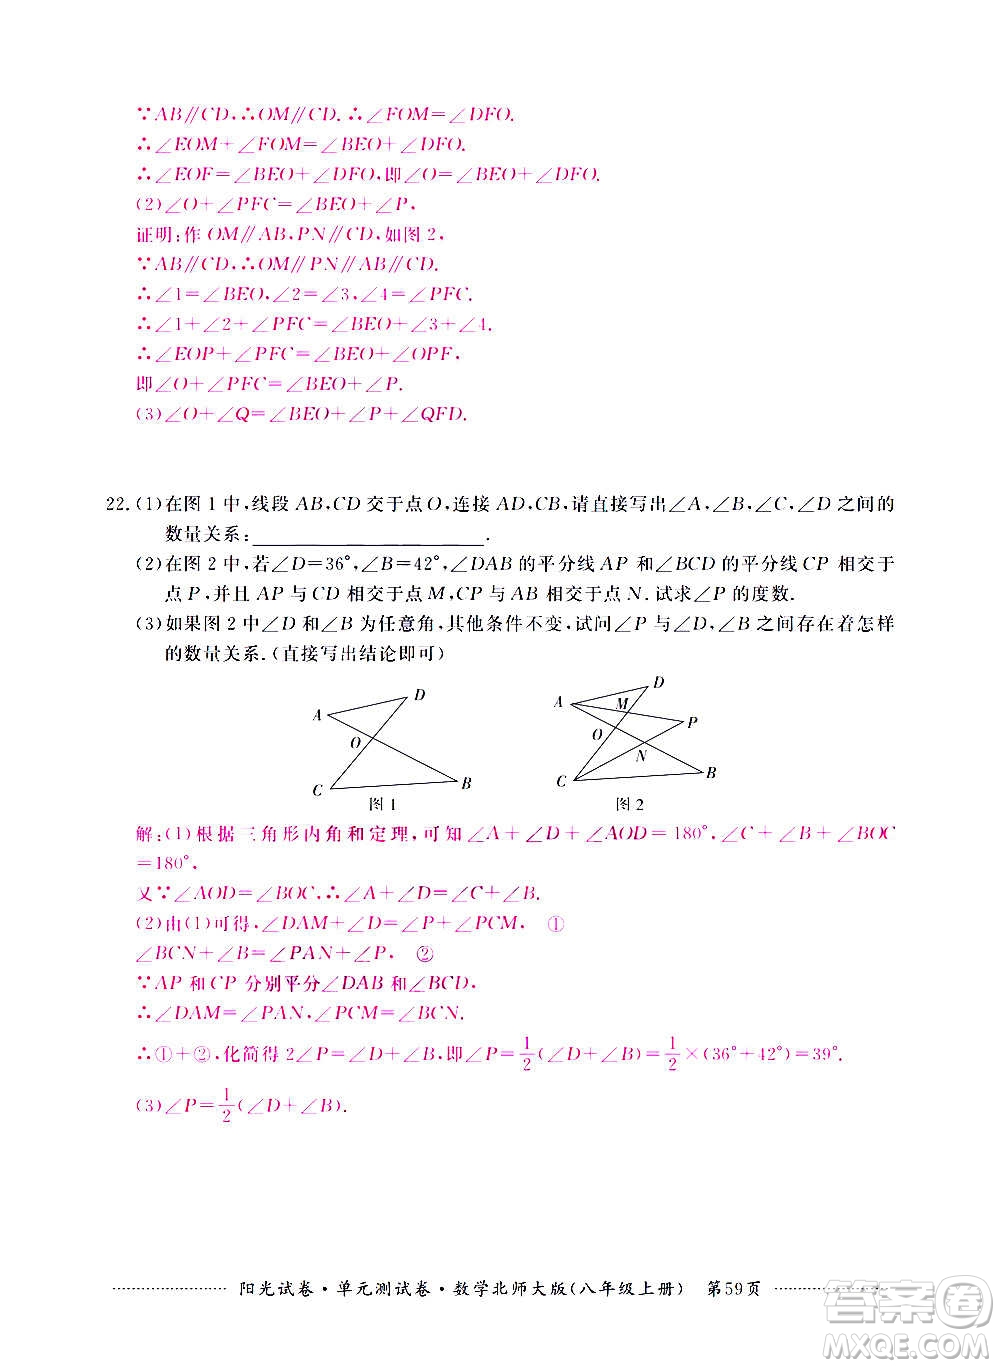 ∵AB∥CD,∴OM∥CD.∴∠FOM=∠DFO.
∴∠EOM+∠FOM=∠BEO+∠DFO.
∴∠EOF=∠BEO+∠DFO,即∠O=∠BEO+∠DFO.
(2)∠O+∠PFC=∠BEO+∠P,
证明:作 OM∥AB,PN∥CD,如图 2,
∵AB∥CD,∴OM∥PN∥AB∥CD.
∴∠1=∠BEO,∠2=∠3,∠4=∠PFC.
∴∠1+∠2+∠PFC=∠BEO+∠3+∠4.
∴∠EOP+∠PFC=∠BEO+∠OPF,
即∠O+∠PFC=∠BEO+∠P.
(3)∠O+∠Q=∠BEO+∠P+∠QFD.
22.(1)在图 1 中,线段 AB,CD 交于点 O,连接 AD,CB,请直接写出∠A,∠B,∠C,∠D 之间的
数量关系:____________________.
(2)在图 2 中,若∠D=36°,∠B=42°,∠DAB 的平分线 AP 和∠BCD 的平分线 CP 相交于
点 P,并且 AP 与 CD 相交于点 M,CP 与 AB 相交于点 N.试求∠P 的度数.
(3)如果图 2 中∠D 和∠B 为任意角,其他条件不变,试问∠P 与∠D,∠B 之间存在着怎样
的数量关系.(直接写出结论即可)
D
A
O
C
B
图 1
D
A
M
P
O
N
C
B
图 2
解:(1)根据三角形内角和定理,可知∠A+∠D+∠AOD=180°,∠C+∠B+∠BOC
=180°,
又∵∠AOD=∠BOC,∴∠A+∠D=∠C+∠B.
(2)由(1)可得,∠DAM+∠D=∠P+∠PCM, ①
∠BCN+∠B=∠PAN+∠P, ②
∵AP 和 CP 分别平分∠DAB 和∠BCD,
∴∠DAM=∠PAN,∠PCM=∠BCN.
∴①+②,化简得 2∠P=∠D+∠B,即∠P=1/2(∠D+∠B)=1/2×(36°+42°)=39°.
(3)∠P=1/2(∠D+∠B).
阳光试卷·单元测试卷·数学北师大版(八年级上册) 第59页
答案圈
MXQE.COM